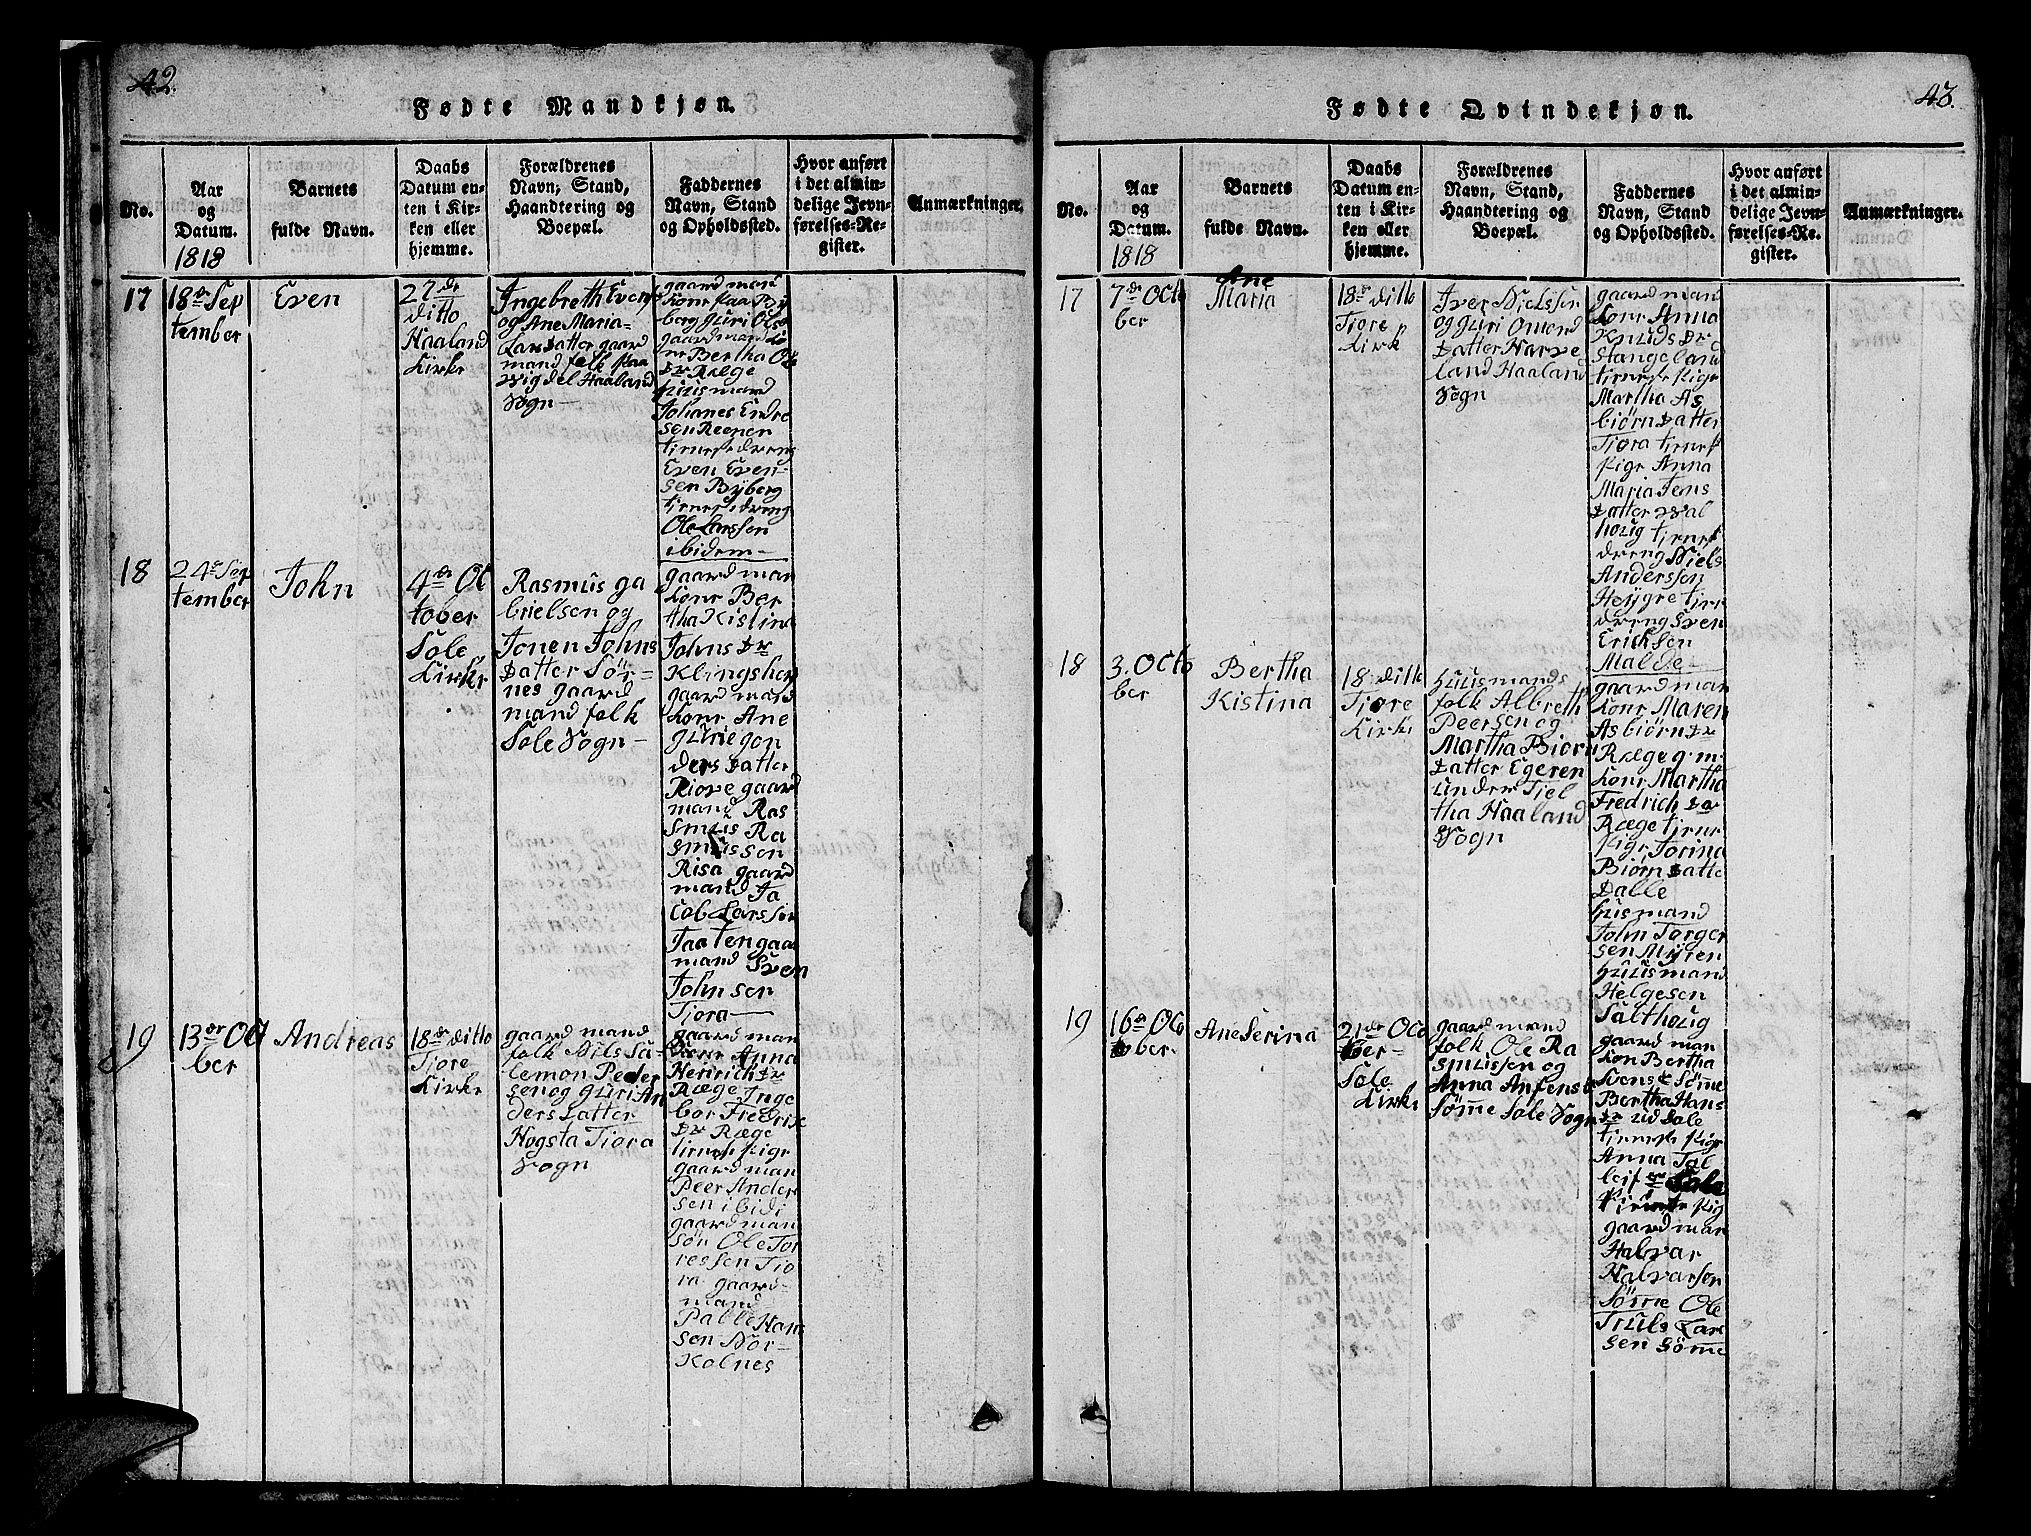 42.
Fødte Mandkjøn.
No.
Aar
og
Datum.
1818
Barnets
fulde Navn.
Daabs
Datum en-
ten i Kir-
ken eller
hjemme.
Forældrenes
Navn, Stand,
Haandtering og
Boepæl.
Faddernes
Navn, Stand
og Opholdssted.
Hvor anført
i det almin-
delige Jevn-
førelses-Re-
gister.
Anmærkninger.
17
18de Sep
tember
Even
27de
ditto
Haaland
Kirke
Ingebreth Evens
og Ane Maria
Lars Datter gaard
mand folk paa
Vigdel Haaland
Sogn
gaard man
konr paa By
berg Guri Ols
gaard mand ko
nr Bertha Ols
Dr Ræge
Huusmand
Johanes Endre
sen Reener
tienest dreng
Even Even-
sen Byberg
tienest dreng
Ole Larssen
ibidem
18
24de Sep
tember
John
4de Oc
tober
Sole
Kirke
Rasmus ga
brielsen og
Jonen Johns
Datter Sör-
nes gaard
mand folk
Sole Sogn
gaard man
konr Ber
tha Kistina
Johns Dr
Klingshey
gaard mand
konr Ane
Guriegon
ders Datter
Riore gaard
mand Ras
smus Ra
smussen
Risa gaard
mand Ja
cob Larssen
Taaten gaar
mand Sven
Johnsen
Tiora
19
13de Oct
ber
Andreas
18de ditto
Tiore
Kirke
gaard mand
folk Nils Sa-
lemon Peder
sen og Guri An
ders Datter
Hogsta Tiora
Sogn
gaard man
konr Anna
Henrich Dr
Ræge Inge
bor Fredrik
Dr Ræge
tienest Pige
gaard man
Peer Ander
sen ibidi
gaard man
sön Ole Tor
ressen Tio
ra gaard-
mand
Palle Hans
sen Nor-
Kolnes
43.
Fødte Qvindekjøn.
No.
Aar
og
Datum.
1818
Barnets
fulde Navn.
Daabs
Datum en-
ten i Kir-
ken eller
hjemme.
Forældrenes
Navn, Stand,
Haandtering og
Boepæl.
Faddernes
Navn, Stand
og Opholdssted.
Hvor anført
i det almin-
delige Jevn-
førelses-Re-
gister.
Anmærkninger.
17
7de Octo
ber
Ane
Maria
18de ditto
Tiore
Kirke
Iver Nielssen
og Guri Omond
Datter Harve
land Haaland
Sogn
gaard mand
konr Anna
Knuds Dr
Stangeland
tienest Pige
Martha As
biörn Datter
Tiora tienest
Pige Anna
Maria Jens
Datter Sval
houg tienest
dreng Niels
Andersen
Heigre tien
dreng Sven
Ericksen
Malde
18
3. Octo
ber
Bertha
Kistina
18 ditto
Tiore
Kirke
Huusmands
folk Albreth
Peersen og
Martha Biorn
Datter Egeren
under Tiel
tha Haaland
Sogn
gaard man
konr Maren
Asbiörn Dr
Ræge g. m.
konr Martha
Fredrich Dr
Ræge tiene
Pige Torina
Biorn Datte
Dalle
Husmand
John Torger
sen Myren
Huusmand
Helgesen
Salthoug
19
16de Oc
tober
Ane Serina
21de Oc
tober
Sole
Kirke
gaard mand
folk Ole Ra
smussen og
Anna Anfens D
Sömme Sole Sogn
gaard man
kon Bertha
Svens D Sömme
Bertha Hans
Dr ud Sole
tienest Pige
Anna Tol
leif Dr Sole
tienest Pig
gaard man
Halvar
Halvarsen
Sömme Ole
Truls Lar
sen Sömme